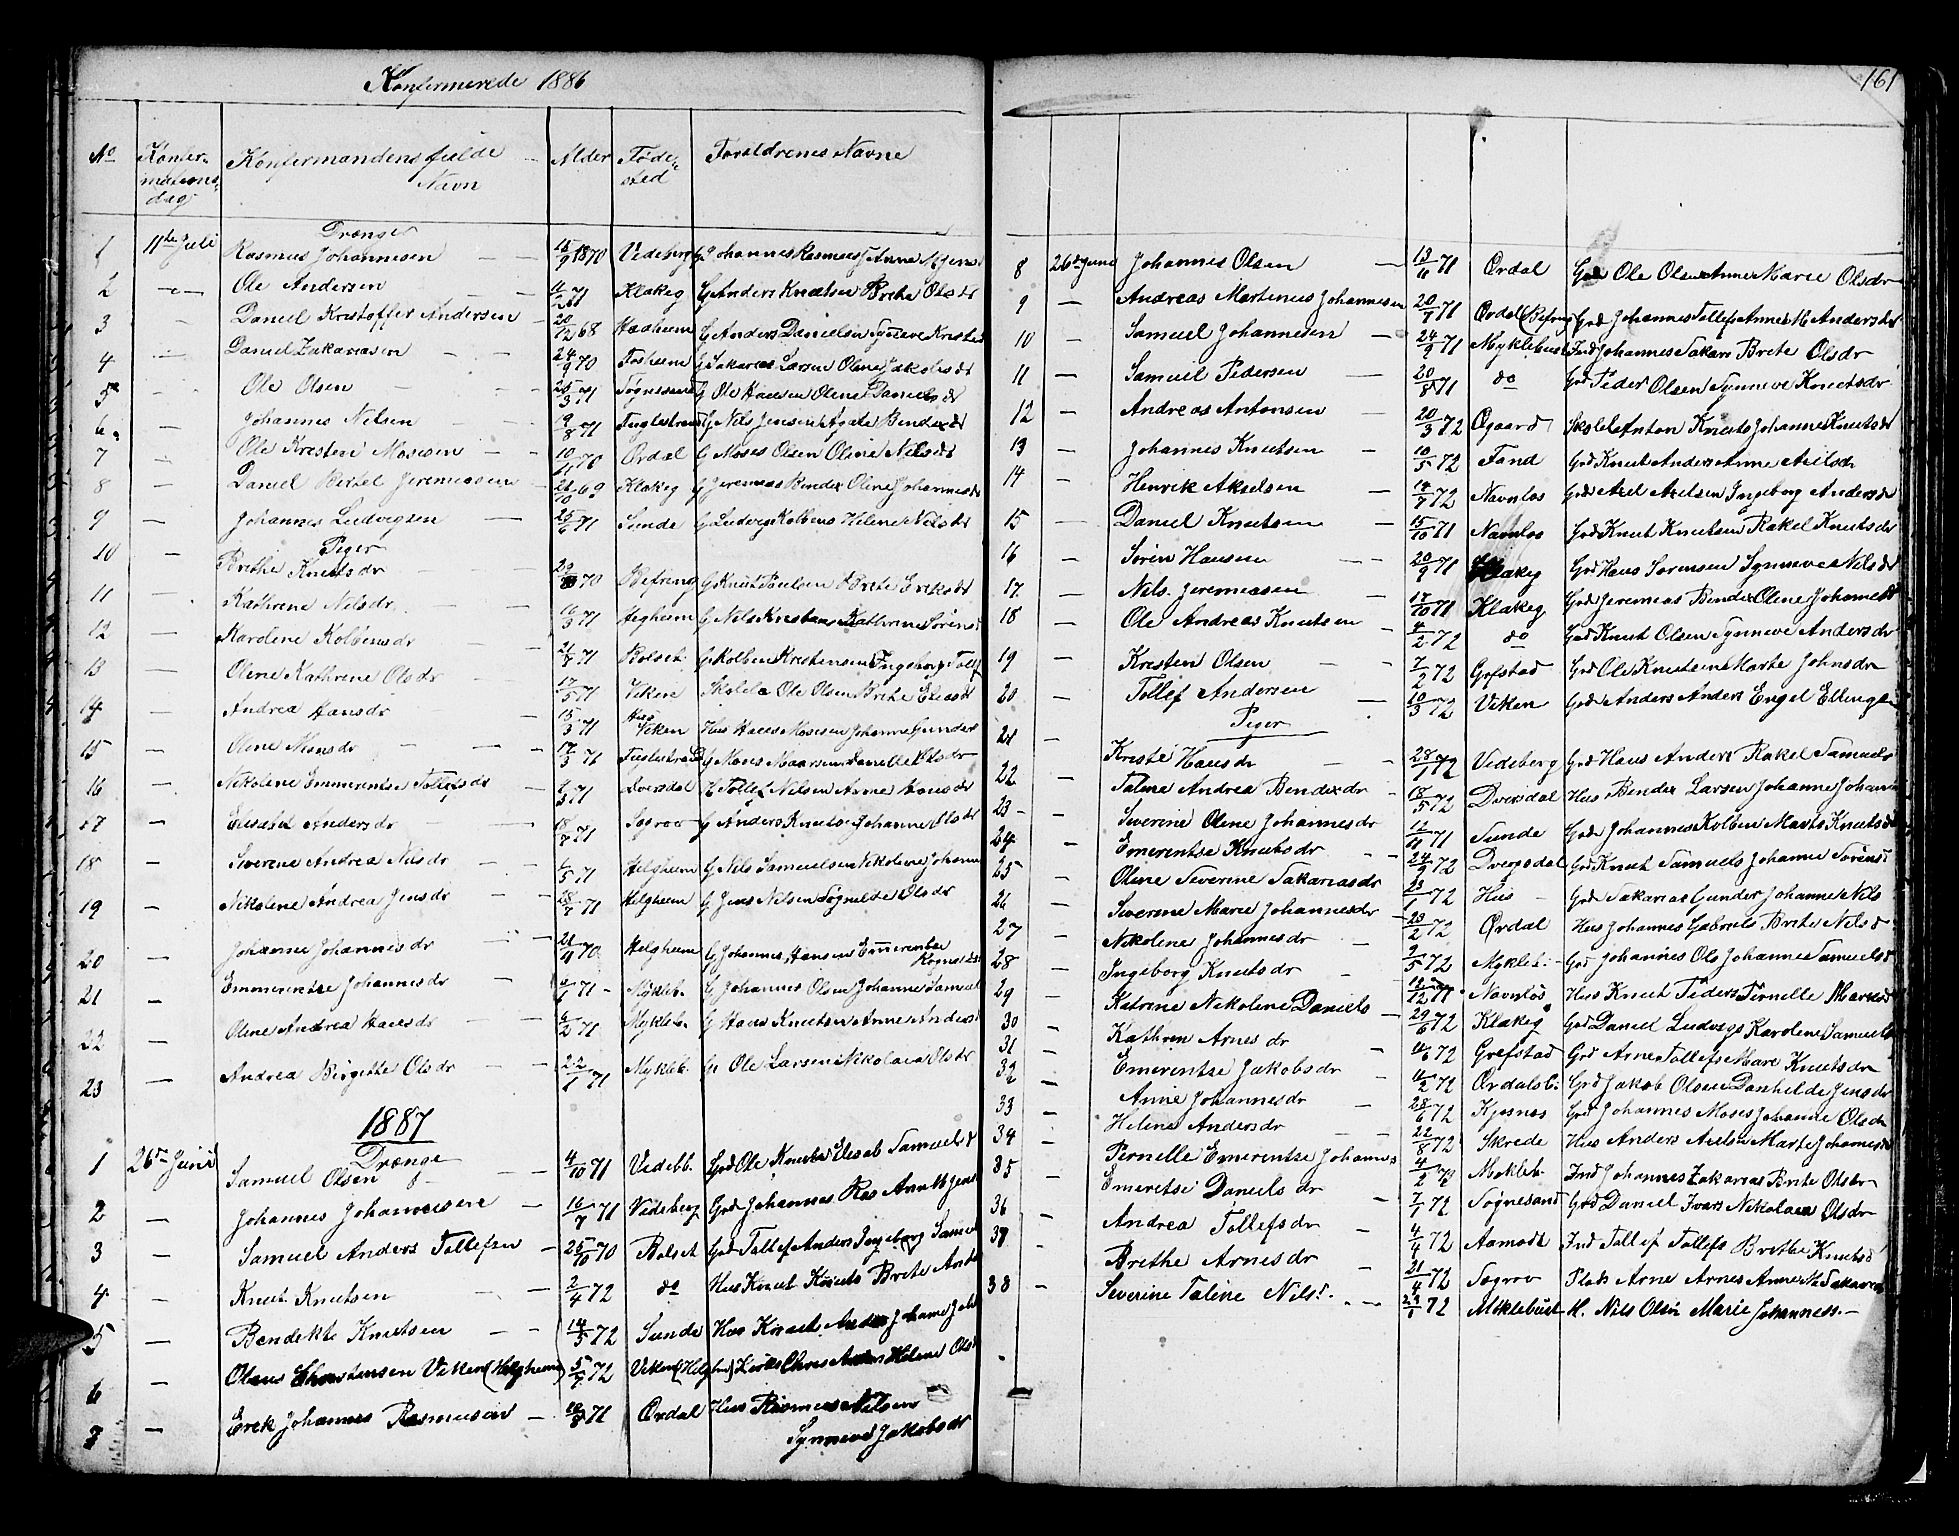 Konfermerede 1886
No Konfermations dag Konfermandens fulde Navn Alder Fødested Forældrenes Navne
Drenger
1 11te Juli Rasmus Johannesen 18/9 1870 Vedeberg G Johannes Rasmus Anne M Jens
2 Ole Andersen 71 Klakeg G Anders Knutsen Brete Olsdr
3 Daniel Kristoffer Andersen 20/12 68 Hedheim G Anders Danielsen Synneve
4 Daniel Zakariasen 24/9 70 G Sakarias Larsen Oline Jakobsdr
5 Ole Olsen 25/3 71 Søgnesand G Ole Hansen Oline Danielsdr
6 Johannes Nilsen 9/8 71 Fuglestrand G Nils Jensen Agate Bendexdr
7 Ole Kresten Mosesen 10/11 70 Ordal G Moses Olsen Oline Nilsdr
8 Daniel Bertel Jeremiasen 26/10 69 Klakeg G Jeremias Bendex Oline Johannesdr
9 Johannes Ludvigsen 25/6 71 Sunde G Ludvig Kolbens Helene Nilsdr
Piger
10 Brethe Knutsdr 29/ 70 Befring G Knut Brete Eriksdr
11 Kathrine Nilsdr 16/3 71 G Nils Kathrine Sørens
12 Karolene Kolbensdr 21/7 71 Bolset G Kolben Krestensen Ingeborg Tollef
13 Oline Kathrene Olsdr 17/5 71 Viken Skolela Ole Olsen Brete Eliasdr
14 Andrea Hansdr 15/3 71 Hus Viken Hus Hans Mosesen Johanne Gunder
15 Oline Monsdr 17/3 71 G Mons Pernille Olsdr
16 Nikolene Emmerentse Tollefsdr 71 Dversdal Tollef Nilsen Anne Hansdr
17 Elisabet Andersdr 18/7 71 Søgrov G Anders Knuts Johanne Olsdr
18 Severine Andrea Nilsdr 6/5 71 Helgheim G Nils Samuelsen Nikoline Johann
19 Nikolene Andrea Jensdr 28/7 71 Helgheim G Jens Nilsen Sognelde Olsdr
20 Johanne Johannesdr 21/4 70 Helgheim G Johannes Hansen Emmerentse
21 Emmerentse Johannesdr 71 Mykleb. G Johannes Olsen Johanne Samuel
22 Oline Andrea Hansdr 6/2 71 Mykleb. G Hans Knutsen Anne Anders
23 Andrea Birgitte Olsdr 22/1 71 Mykleb. G Ole Larsen Nikolaia Olsdr
1887
Drenge
1 26de Juni Samuel Olsen 4/10 71 Vedeb. Grd Ole Knuts Elisab Samuelsd
2 Johannes Johannesen 16/7 71 Vedeberg Grd Johannes Ras Ane M Jens
3 Samuel Anders Tollefsen 25/10 70 Bolset Grd Tollef Anders Ingeborg Samuel
4 Knut Knutsen 2/4 72 do Hus Knut Knuts Brete Ande
5 Bendekte Knutsen 14/5 72 Sunde Hus Knut Ander Johanne Joh
6 Olaus Christensen Viken (Helgheim) 5/7 72 Viken (Helghei) Chris Anders Helene Ols
7 Erek Johannes Rasmusen 10/8 71 Ordal Hus Rasmus Nilsen
Synneve Jakobsdr
161
8 26de Juni Johannes Olsen 13/11 71 Ordal Grd Ole Olsen Anne Marie Olsdr
9 Andreas Martinus Johannesen 20/7 71 Ordal (Befring Grd Johannes Tollefs Anne M Andersdr
10 Samuel Johannesen 24/9 71 Myklebust Ind Johannes Sakari Brete Olsdr
11 Samuel Pedersen 20/8 71 do Grd Peder Olsen Synneve Knutsdr
12 Andreas Antonsen 20/3 72 Øgaard Skolel Anton Knuts Johanne Knutsdr
13 Johannes Knutsen 10/5 72 Fond Grd Knut Anders Anne Axelsdr
14 Henrik Akselsen 14/7 72 Navnløs Grd Axel Axelsen Ingeborg Andersdr
15 Daniel Knutsen 15/10 71 Navnløs Grd Knut Knutsen Rakel Knutsdr
16 Søren Hansen 20/9 71 Klakeg Grd Hans Sørensen Synneve Nilsdr
17. Nils Jeremiasen 17/10 71 Klakeg Grd Jeremias Bendex Oline Johannesdr
18 Ole Andreas Knutsen 4/2 72 do Grd Knut Olsen Synneve Andersdr
19 Kresten Olsen 7/2 72 Grefstad Grd Ole Knutsen Marte Johnsdr
20 Tollef Andersen 10/3 72 Viken Grd Anders Anders Engel Ellings
Piger
21 Kreste Hansdr 28/1 72 Vedeberg Grd Hans Anders Rakel Samuels
22 Taline Andrea Bendexdr 18/5 72 Dversdal Hus Bendex Larsen Johanne Johann
23 Severine Oline Johannesdr 12/11 71 Sunde Grd Johannes Kolben Marte Knutsdr
24 Emerentse Knutsdr 24/9 72 Dvergsdal Grd Knut Samuels Johanne Sørens
25 Oline Severine Sakariasdr 23/1 72 Hus Grd Sakarias Gunder Johanne Nils
26 Severine Marie Johannesdr 23/2 72 Ordal Hus Johannes Gabriels Brite Nilsd
27 Nikolene Johannesdr 9/5 72 Mykleb. Grd Johannes Ols Johanne Samuelsd
28 Ingeborg Knutsdr 12/12 71 Navnløs Hus Knut Peders Pernelle
29 Katrine Nikoline Daniels 29/6 72 Klakeg Grd Daniel Ludvigs Karoline Samuels
30 Kathren Arnesdr 72 Grefstad Grd Arne Tollefs Mare Knutsdr
31 Emerentse Jakobsdr 11/2 72 Ordalsb. Grd Jakob Olsen Danhilde Jensdr
32 Anne Johannesdr 28/6 72 Kjøsnes Grd Johannes Moses Johanne Olsdr
33 Helene Andersdr 22/8 72 Skrede Hus Anders Axels Marte Johannesd
34 Pernelle Emerentse Johannes 4/2 72 Mykleb. Ind Johannes Zakarias Brite Olsdr
35 Emeretse Danielsdr 7/1 72 Søgnesand Grd Daniel Ivars Nikolaia Olsdr
36 Andrea Tollefsdr 4/4 72 Aamodt Ind Tollef Tollefs Brethe Knutsd
37 Brethe Arnesdr 21/4 72 Søgrov Plads Arne Arnes Anne M Sakarias
38 Severine Taline Nilsd. 23/1 72 Myklebust H. Nils Olsen Marie Johanness.